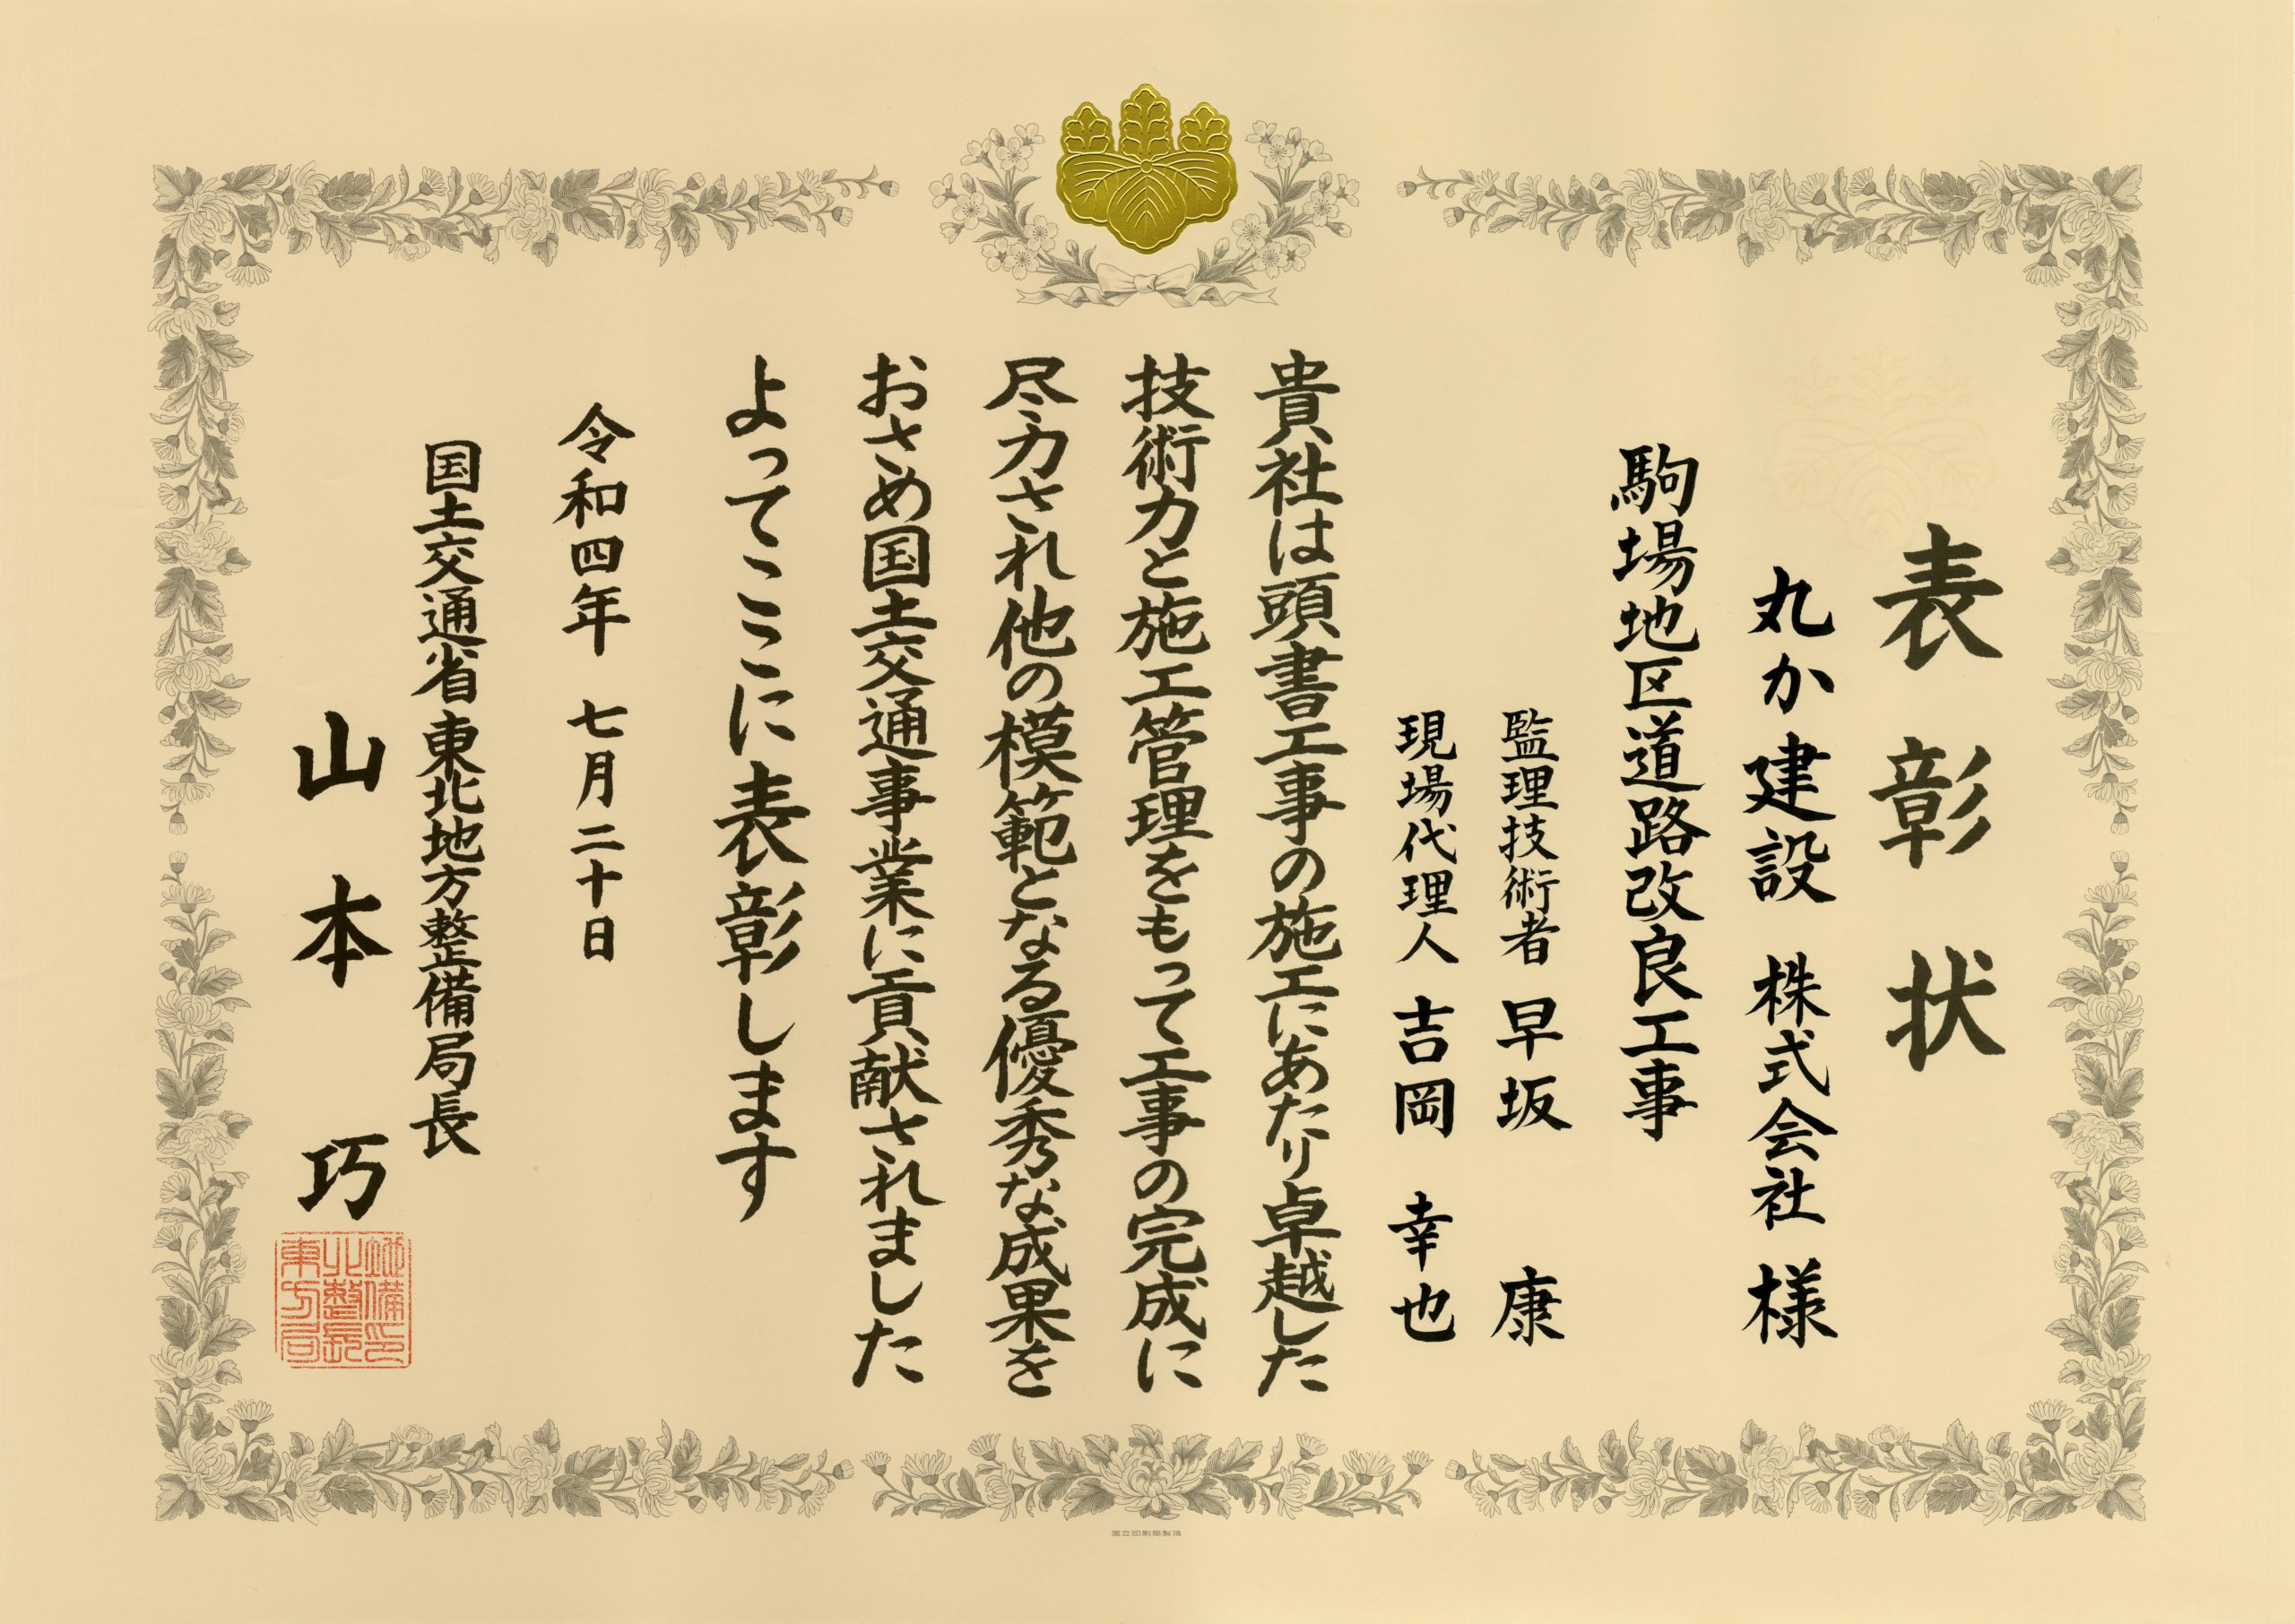 表彰状
丸か建設 株式会社 様
駒場地区道路改良工事
監理技術者 早坂 康
現場代理人 吉岡 幸也
貴社は頭書工事の施工にあたり卓越した
技術力と施工管理をもって工事の完成に
尽力され他の模範となる優秀な成果を
おさめ国土交通事業に貢献されました
よってここに表彰します
令和四年 七月二十日
国土交通省東北地方整備局長
山本 巧
東北地
方整備
局長印
国立印刷局製造